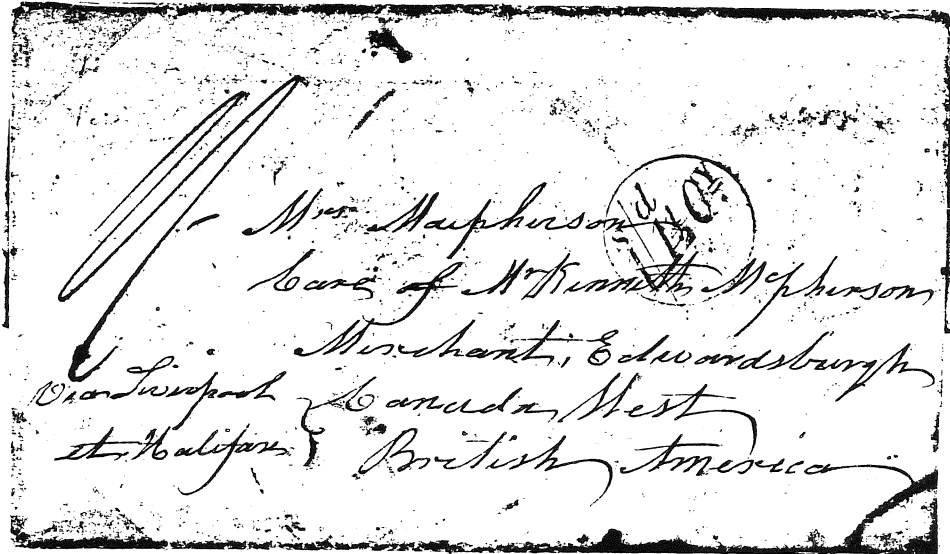 Mrs Macpherson
Care of Mr Kenneth McPherson
Merchant, Edwardsburgh
Canada West
British America
Via Liverpool
et Halifax